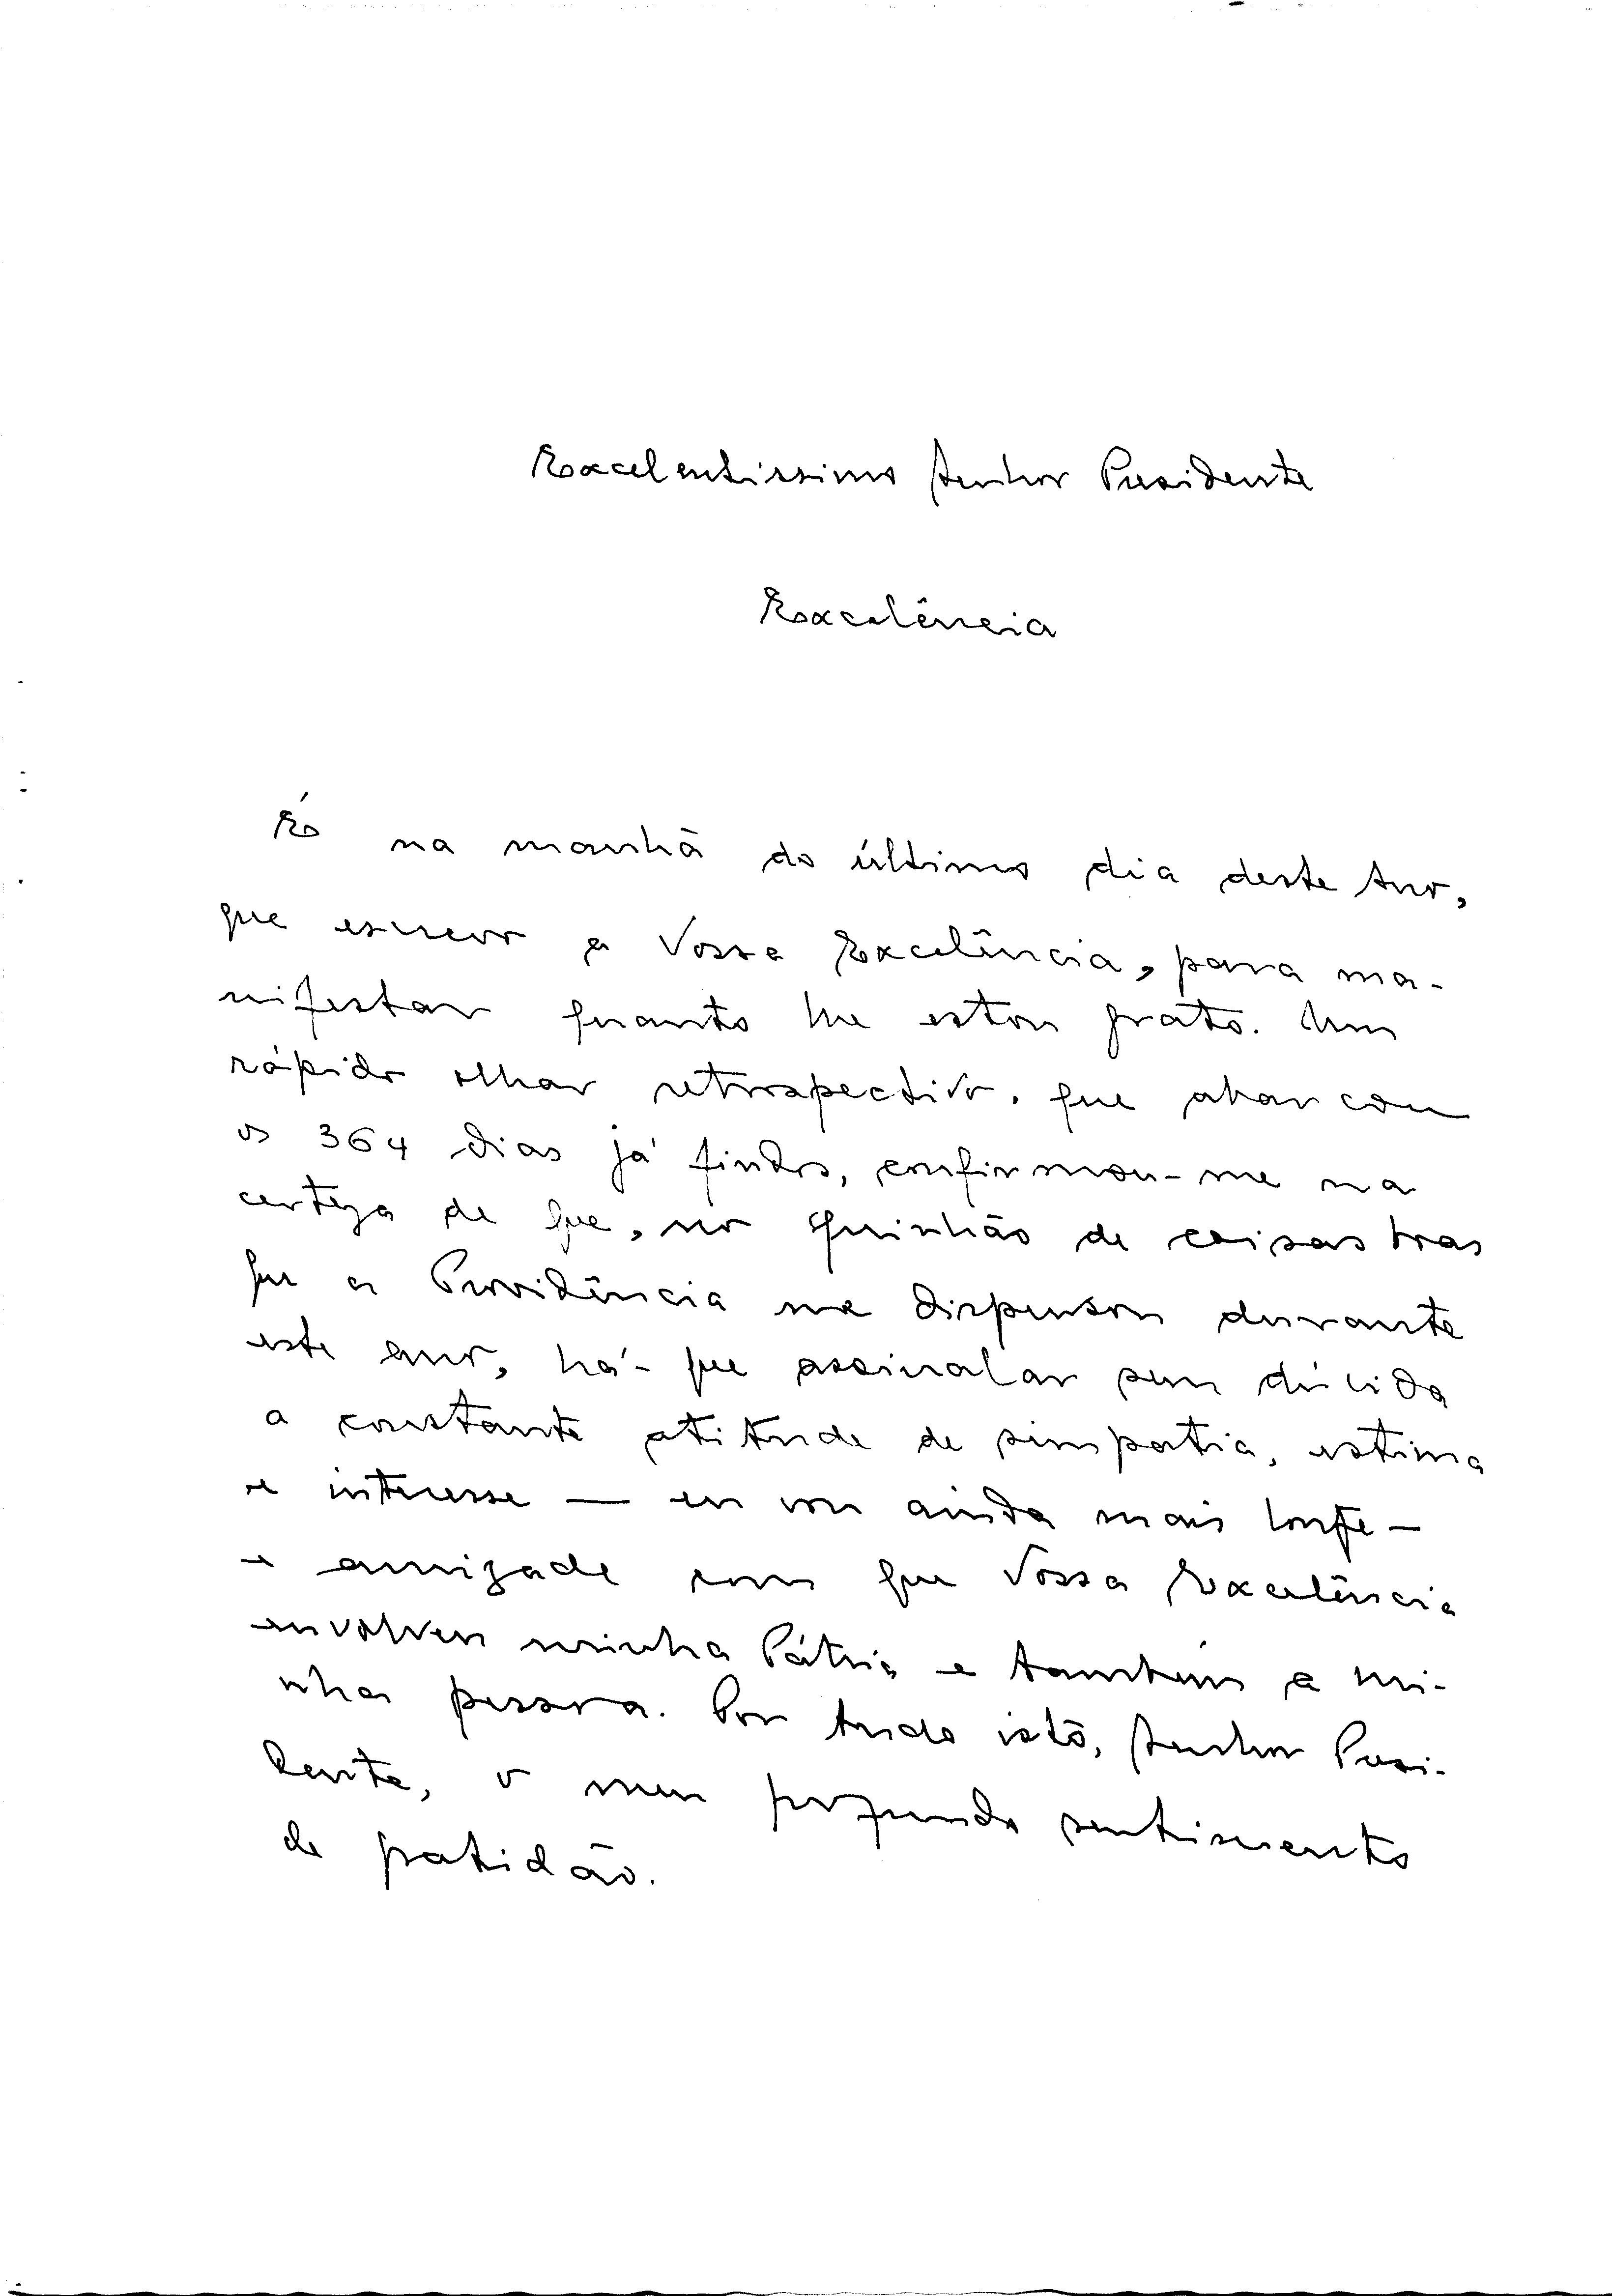 Excelentíssimo Senhor Presidente
Excelência
É na manhã do último dia deste Ano,
que escrevo a Vossa Excelência, para ma-
nifestar quanto lhe estou grato. Um
rápido olhar retrospectivo, que abarcou
os 364 dias já findos, confirmou-me na
certeza de que, no quinhão de coisas boas
que a Providência me dispensou durante
este ano, há-que assinalar sem dúvida
a constante atitude de simpatia, estima
e interesse — eu vou ainda mais longe —
e amizade com que Vossa Excelência
envolveu minha Pátria e também a mi-
nha pessoa. Por tudo isto, Senhor Presi-
dente, o meu profundo sentimento
de gratidão.